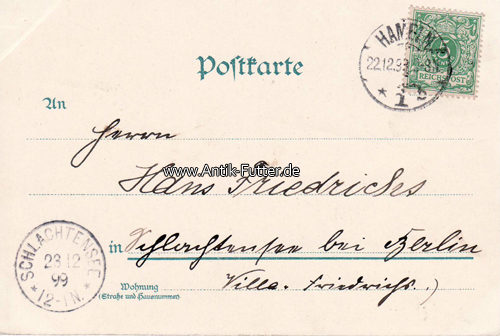 HAMELN
22.12.99
* 1 b
5
REICHSPOST
Postkarte
An
Herrn
www.Antik-Futter.de
Hans Friedrichs
in Schlachtensee bei Berlin
SCHLACHTENSEE
23 12
99
* 12-1N. *
Wohnung
(Straße und Hausnummer)
Villa. Friedrichs.)